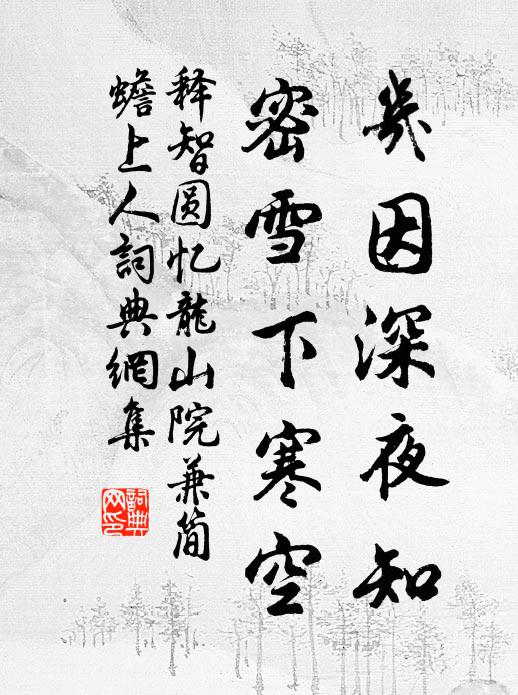 幾因深夜知
密雪下寒空
释智圆忆龍山院兼简
蟾上人詞典網集
詞典
网印